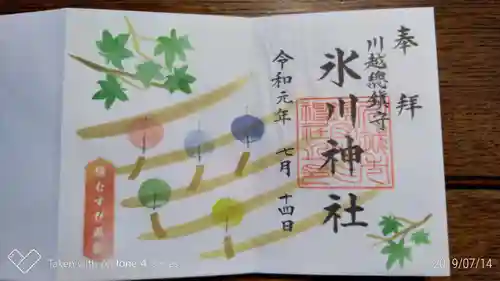 奉拝
川越總鎮守
氷川神社
令和元年 七月 十四日
縁むすび風鈴
Taken with Zenfone 4 Series
2019/07/14